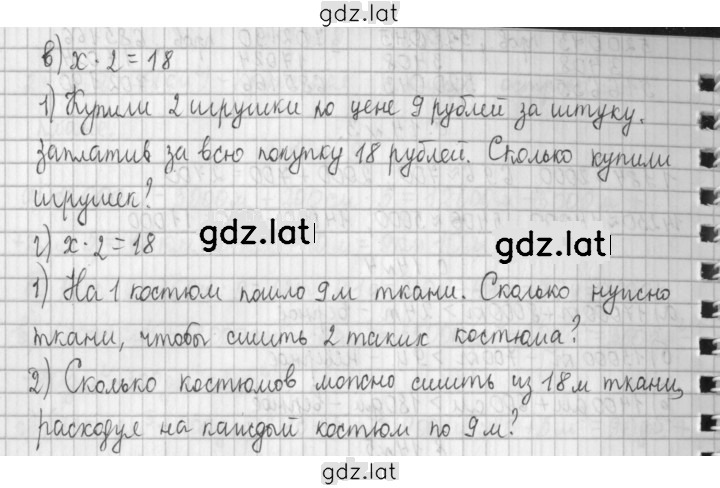 gdz.lat
в) x · 2 = 18
1) Купили 2 игрушки по цене 9 рублей за штуку,
заплатив за всю покупку 18 рублей. Сколько купили
игрушек?
gdz.lat
г) x · 2 = 18
gdz.lat
1) На 1 костюм пошло 9 м ткани. Сколько нужно
ткани, чтобы сшить 2 таких костюма?
2) Сколько костюмов можно сшить из 18 м ткани,
расходуя на каждый костюм по 9 м?
gdz.lat